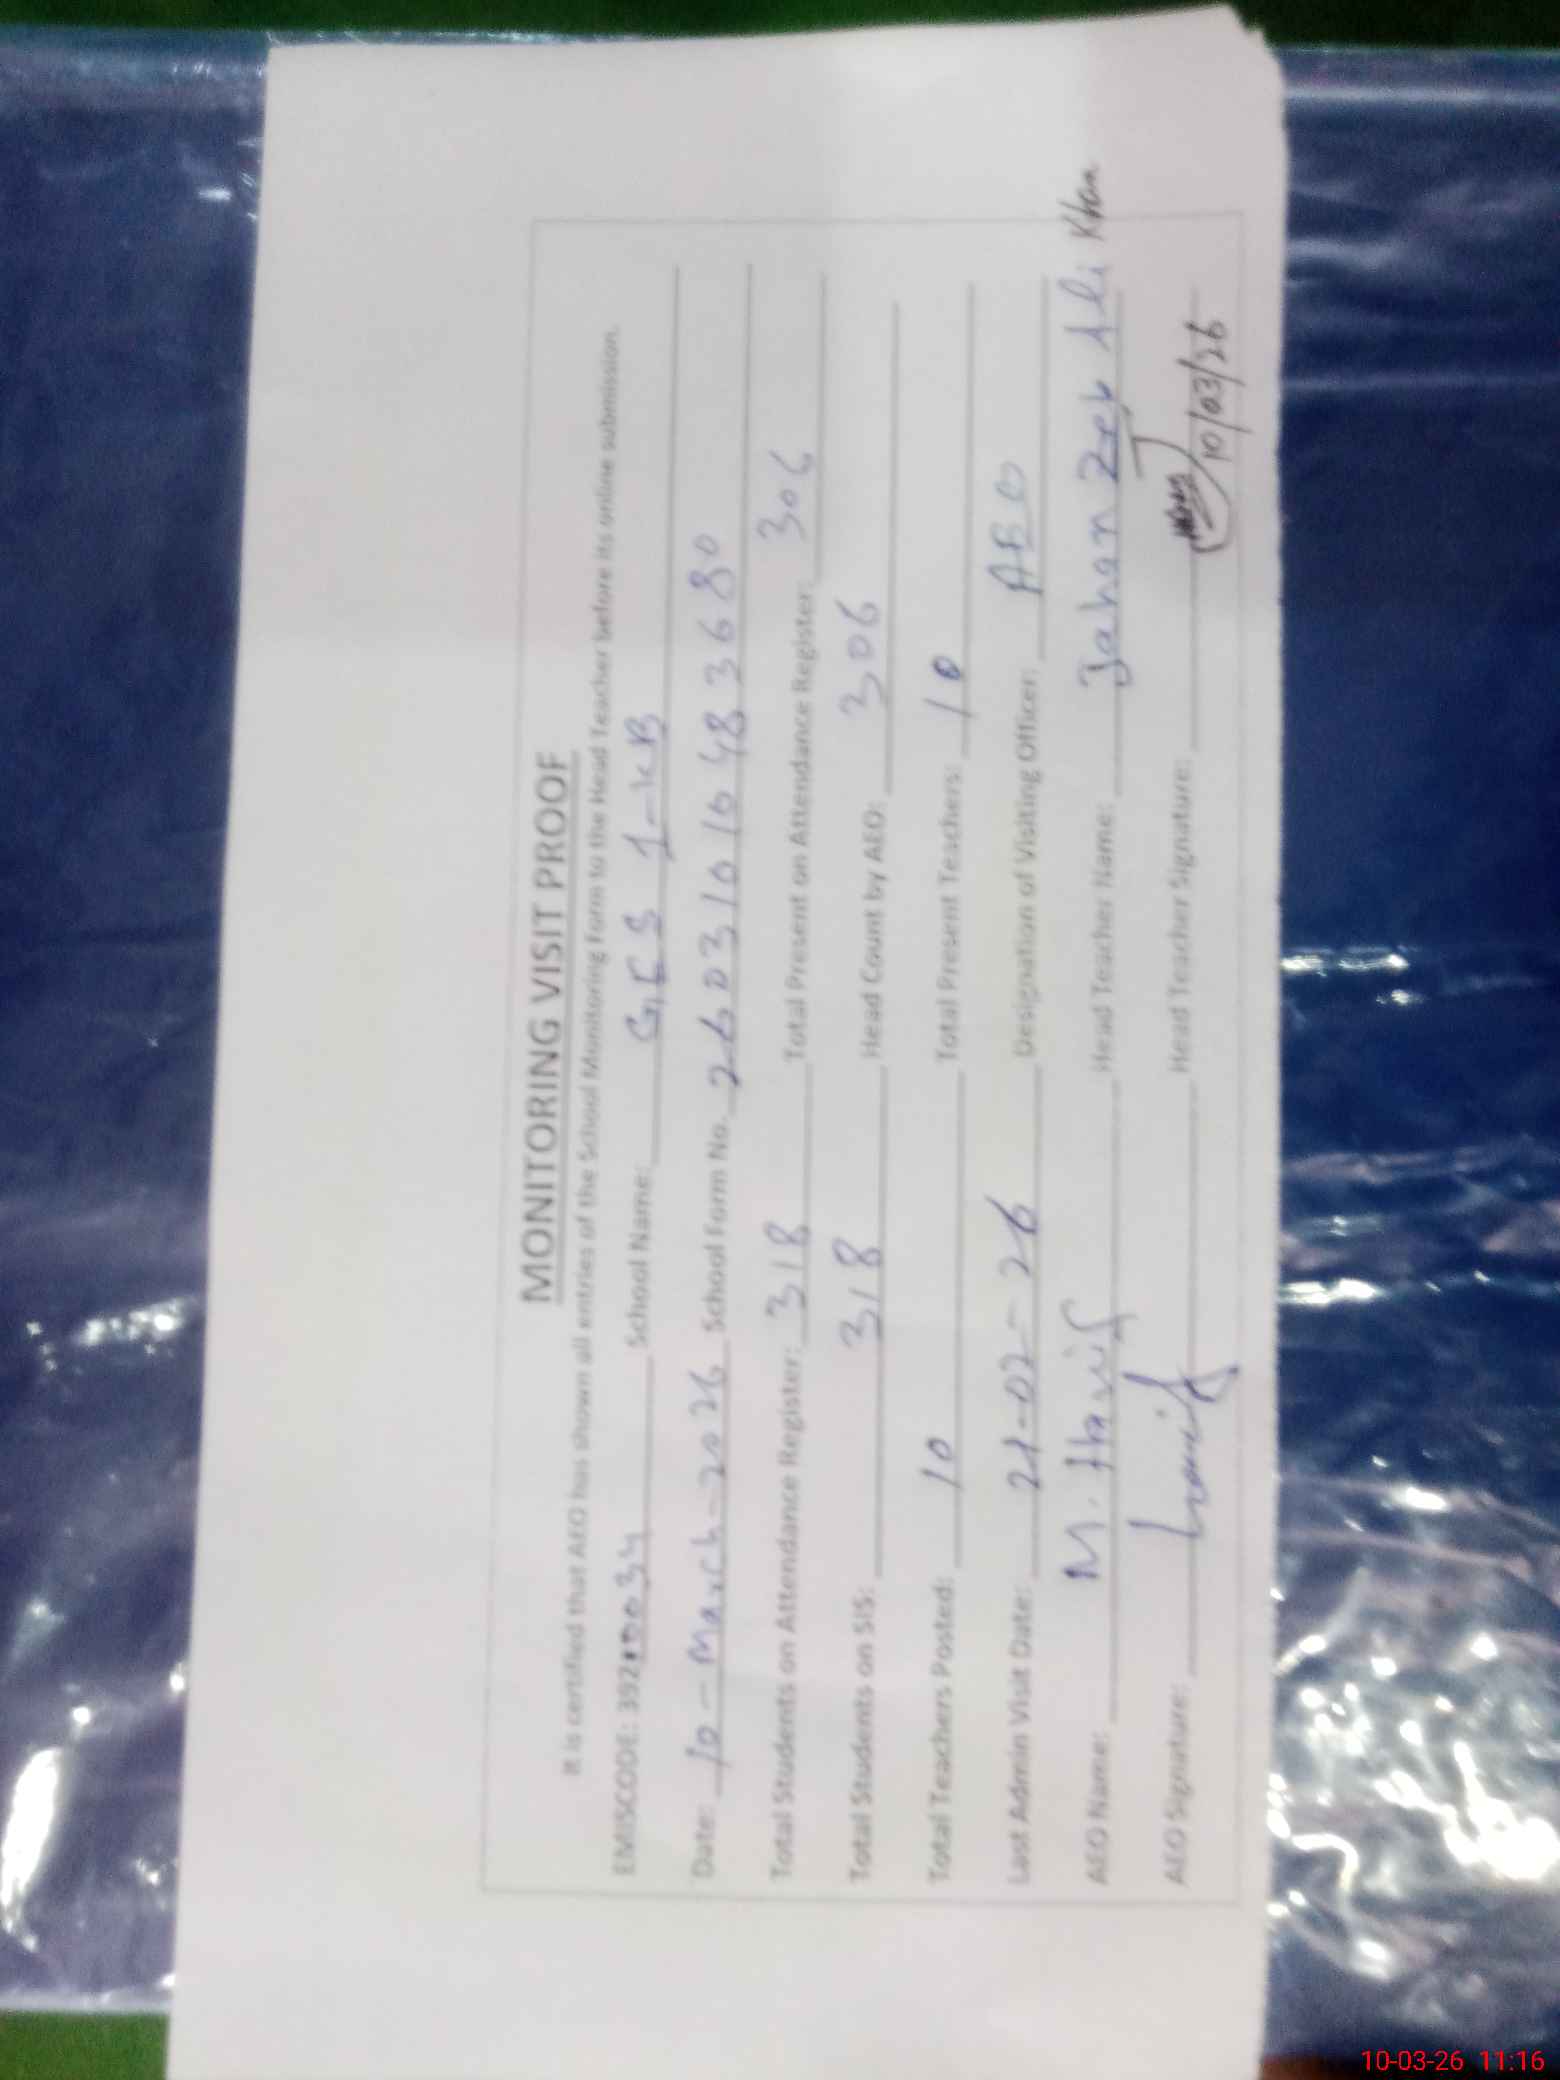 MONITORING VISIT PROOF
It is certified that AEO has shown all entries of the School Monitoring Form to the Head Teacher before its online submission.
EMISCODE: 392 School Name: GES 1-KB
Date: 10-March-2026 School Form No. 2603101048 3680
Total Students on Attendance Register: 318 Total Present on Attendance Register: 306
Total Students on SIS: 318 Head Count by AEO: 306
Total Teachers Posted: 10 Total Present Teachers: 10
Last Admin Visit Date: 21-02-26 Designation of Visiting Officer: AEO
AEO Name: M. Hanif Head Teacher Name: Jahan Zeb Ali Khan
AEO Signature: Hanif Head Teacher Signature:
10/03/26
10-03-26 11:16